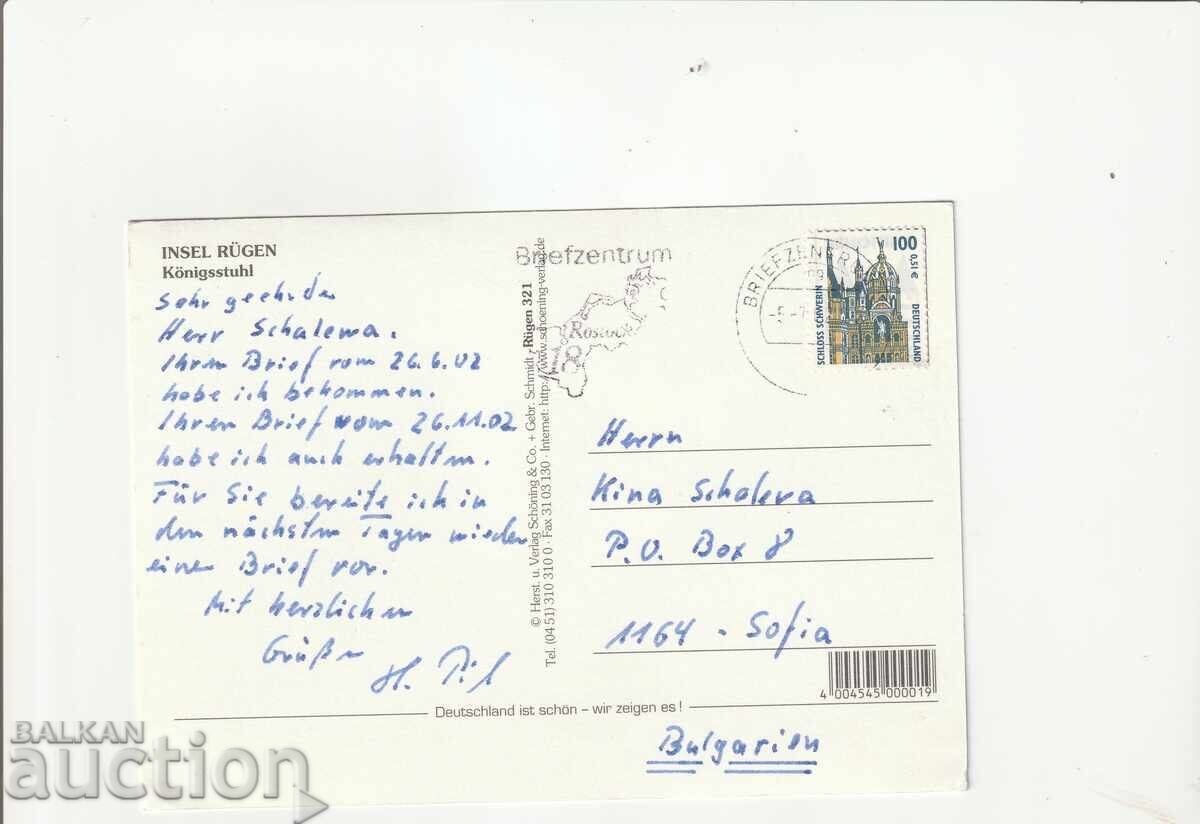 INSEL RÜGEN
Königsstuhl
Sehr geehrter
Herr Schalewa.
Ihren Brief vom 26.6.02
habe ich bekommen.
Ihren Brief vom 26.11.02
habe ich auch erhalten.
Für Sie bereite ich in
den nächsten Tagen wieder
einen Brief vor.
Mit herzlichen
Grüßen
H.
© Herst. u. Verlag Schöning & Co. + Gebr. Schmidt · Rügen 321
Tel. (04 51) 310 310 0 · Fax 31 03 130 · Internet: http://www.schoening-verlag.de
Briefzentrum
Rostock
BRIEFZENTRUM
100
0,51 €
SCHLOSS SCHWERIN
DEUTSCHLAND
Herrn
Kina Schaleva
P.O. Box 8
1164 - Sofia
4 004545 000019
Deutschland ist schön – wir zeigen es!
Bulgarien
BALKAN
auction